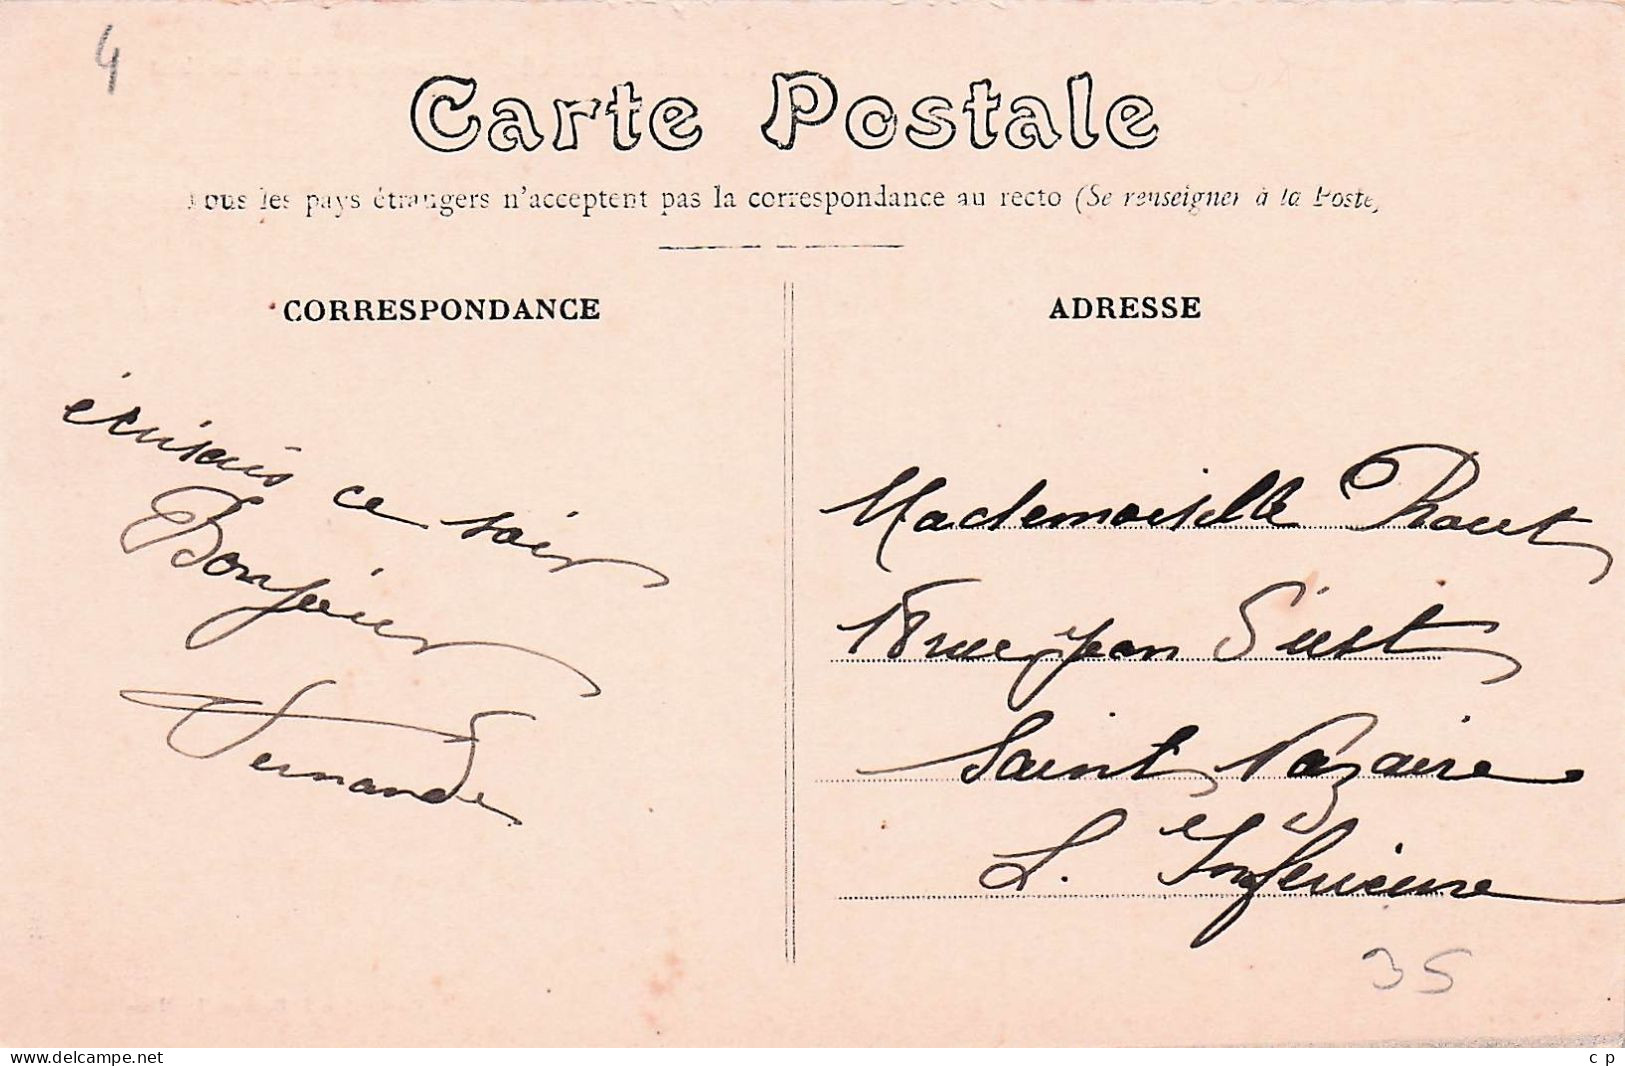 4
Carte Postale
Tous les pays étrangers n'acceptent pas la correspondance au recto (Se renseigner à la Poste)
CORRESPONDANCE
ADRESSE
écrirais ce soir
Bonjour
Fernande
Mademoiselle
18 rue Jean
Saint Nazaire
L. Inférieure
35
www.delcampe.net
c p